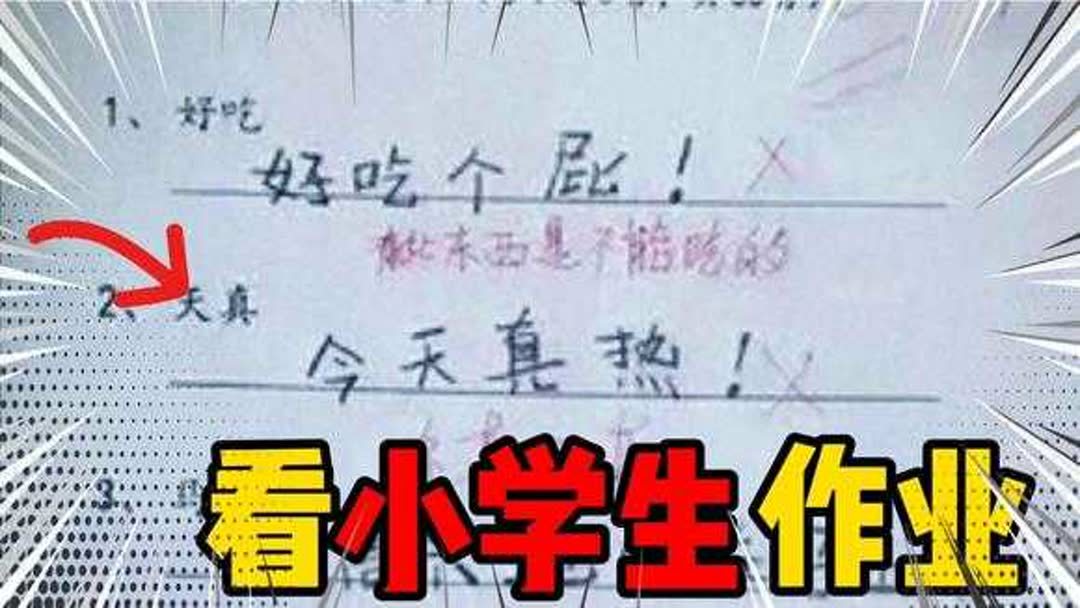 1、好吃
好吃个屁！
东西是不能吃的
2、天真
今天真热！
3、
看小学生作业